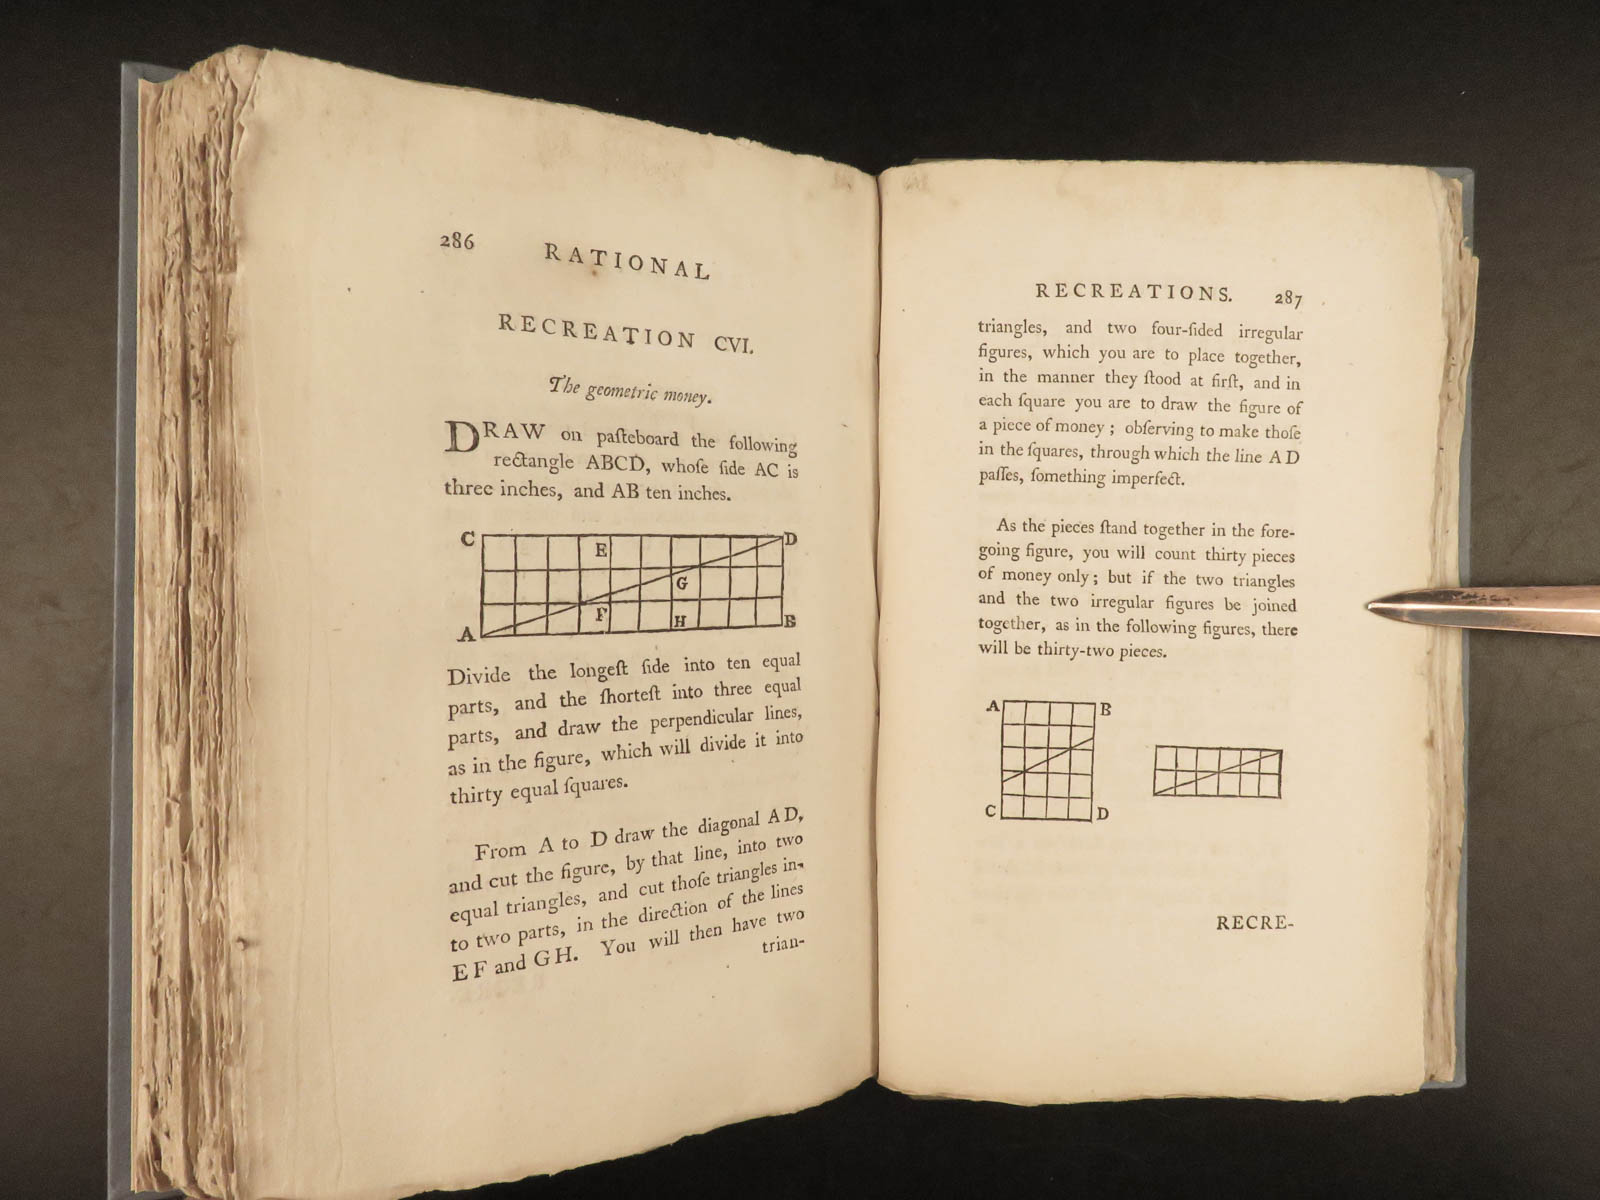 286
RATIONAL
RECREATION CVI.
The geometric money.
DRAW on paſteboard the following
rectangle ABCD, whoſe ſide AC is
three inches, and AB ten inches.
C
E
D
G
A
F
H
B
Divide the longeſt ſide into ten equal
parts, and the ſhorteſt into three equal
parts, and draw the perpendicular lines,
as in the figure, which will divide it into
thirty equal ſquares.
From A to D draw the diagonal AD,
and cut the figure, by that line, into two
equal triangles, and cut thoſe triangles in-
to two parts, in the direction of the lines
EF and GH. You will then have two
trian-
RECREATIONS. 287
triangles, and two four-ſided irregular
figures, which you are to place together,
in the manner they ſtood at firſt, and in
each ſquare you are to draw the figure of
a piece of money; obſerving to make thoſe
in the ſquares, through which the line AD
paſſes, ſomething imperfect.
As the pieces ſtand together in the fore-
going figure, you will count thirty pieces
of money only; but if the two triangles
and the two irregular figures be joined
together, as in the following figures, there
will be thirty-two pieces.
A
B
C
D
RECRE-